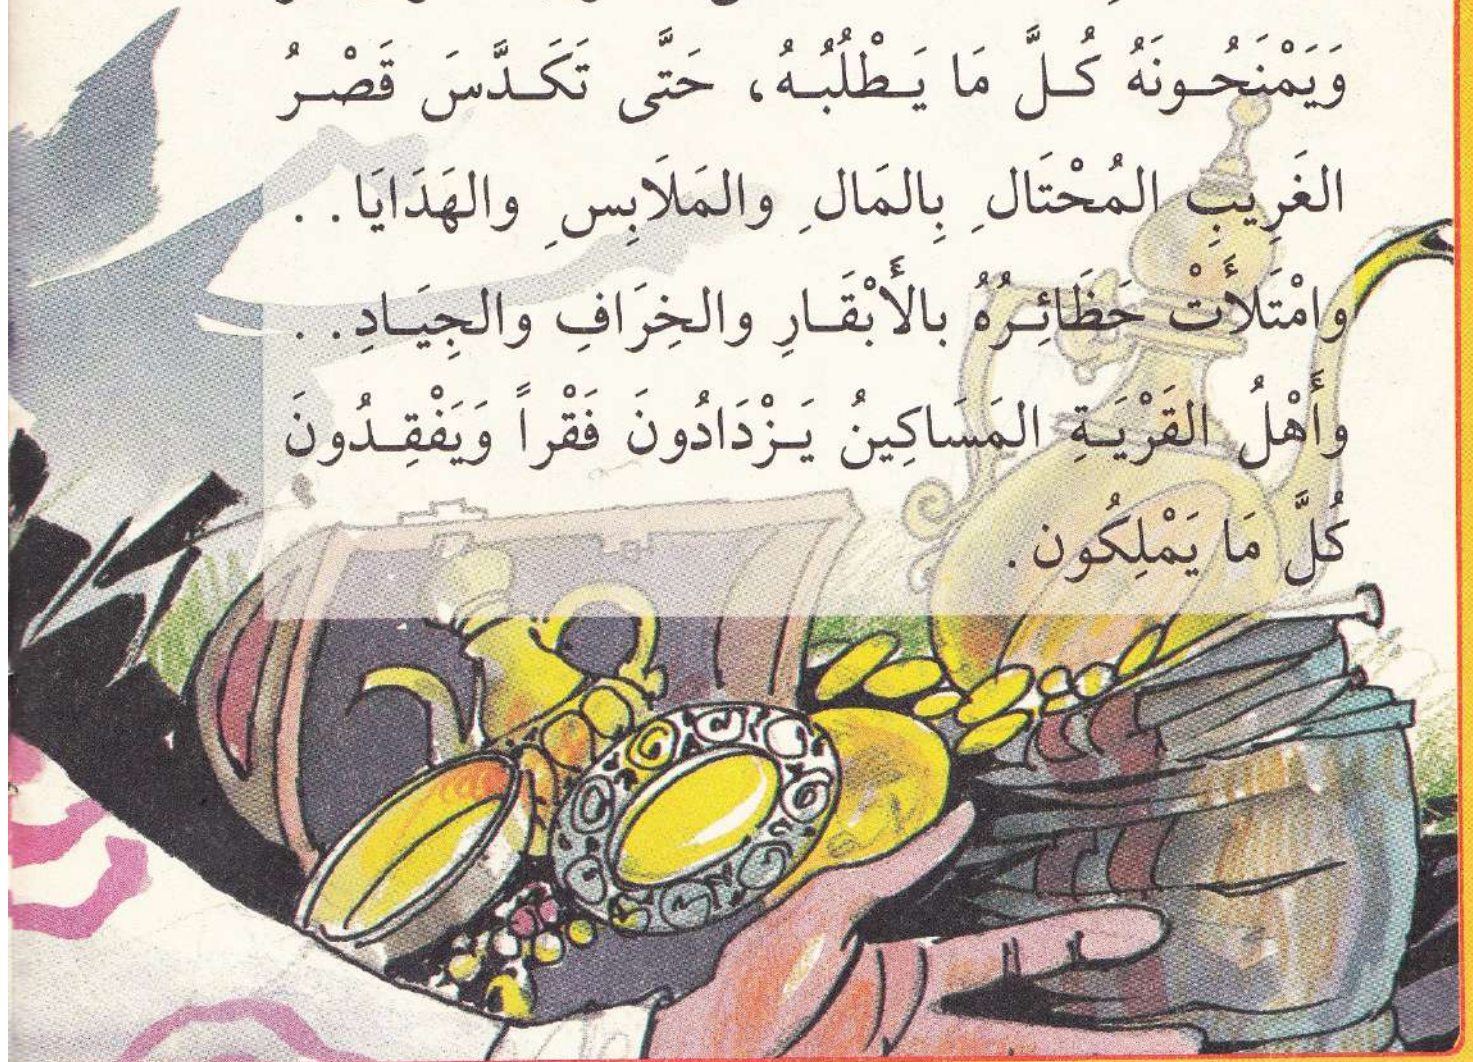 وَيَمْنَحُونَهُ كُلَّ مَا يَطْلُبُهُ، حَتَّى تَكَدَّسَ قَصْرُ
الغَرِيبِ المُحْتَالِ بِالمَالِ والمَلَابِسِ والهَدَايَا..
وامْتَلَأَتْ حَظَائِرُهُ بالأَبْقَارِ والخِرَافِ والجِيَادِ..
وأَهْلُ القَرْيَةِ المَسَاكِينُ يَزْدَادُونَ فَقْراً وَيَفْقِدُونَ
كُلَّ مَا يَمْلِكُون.